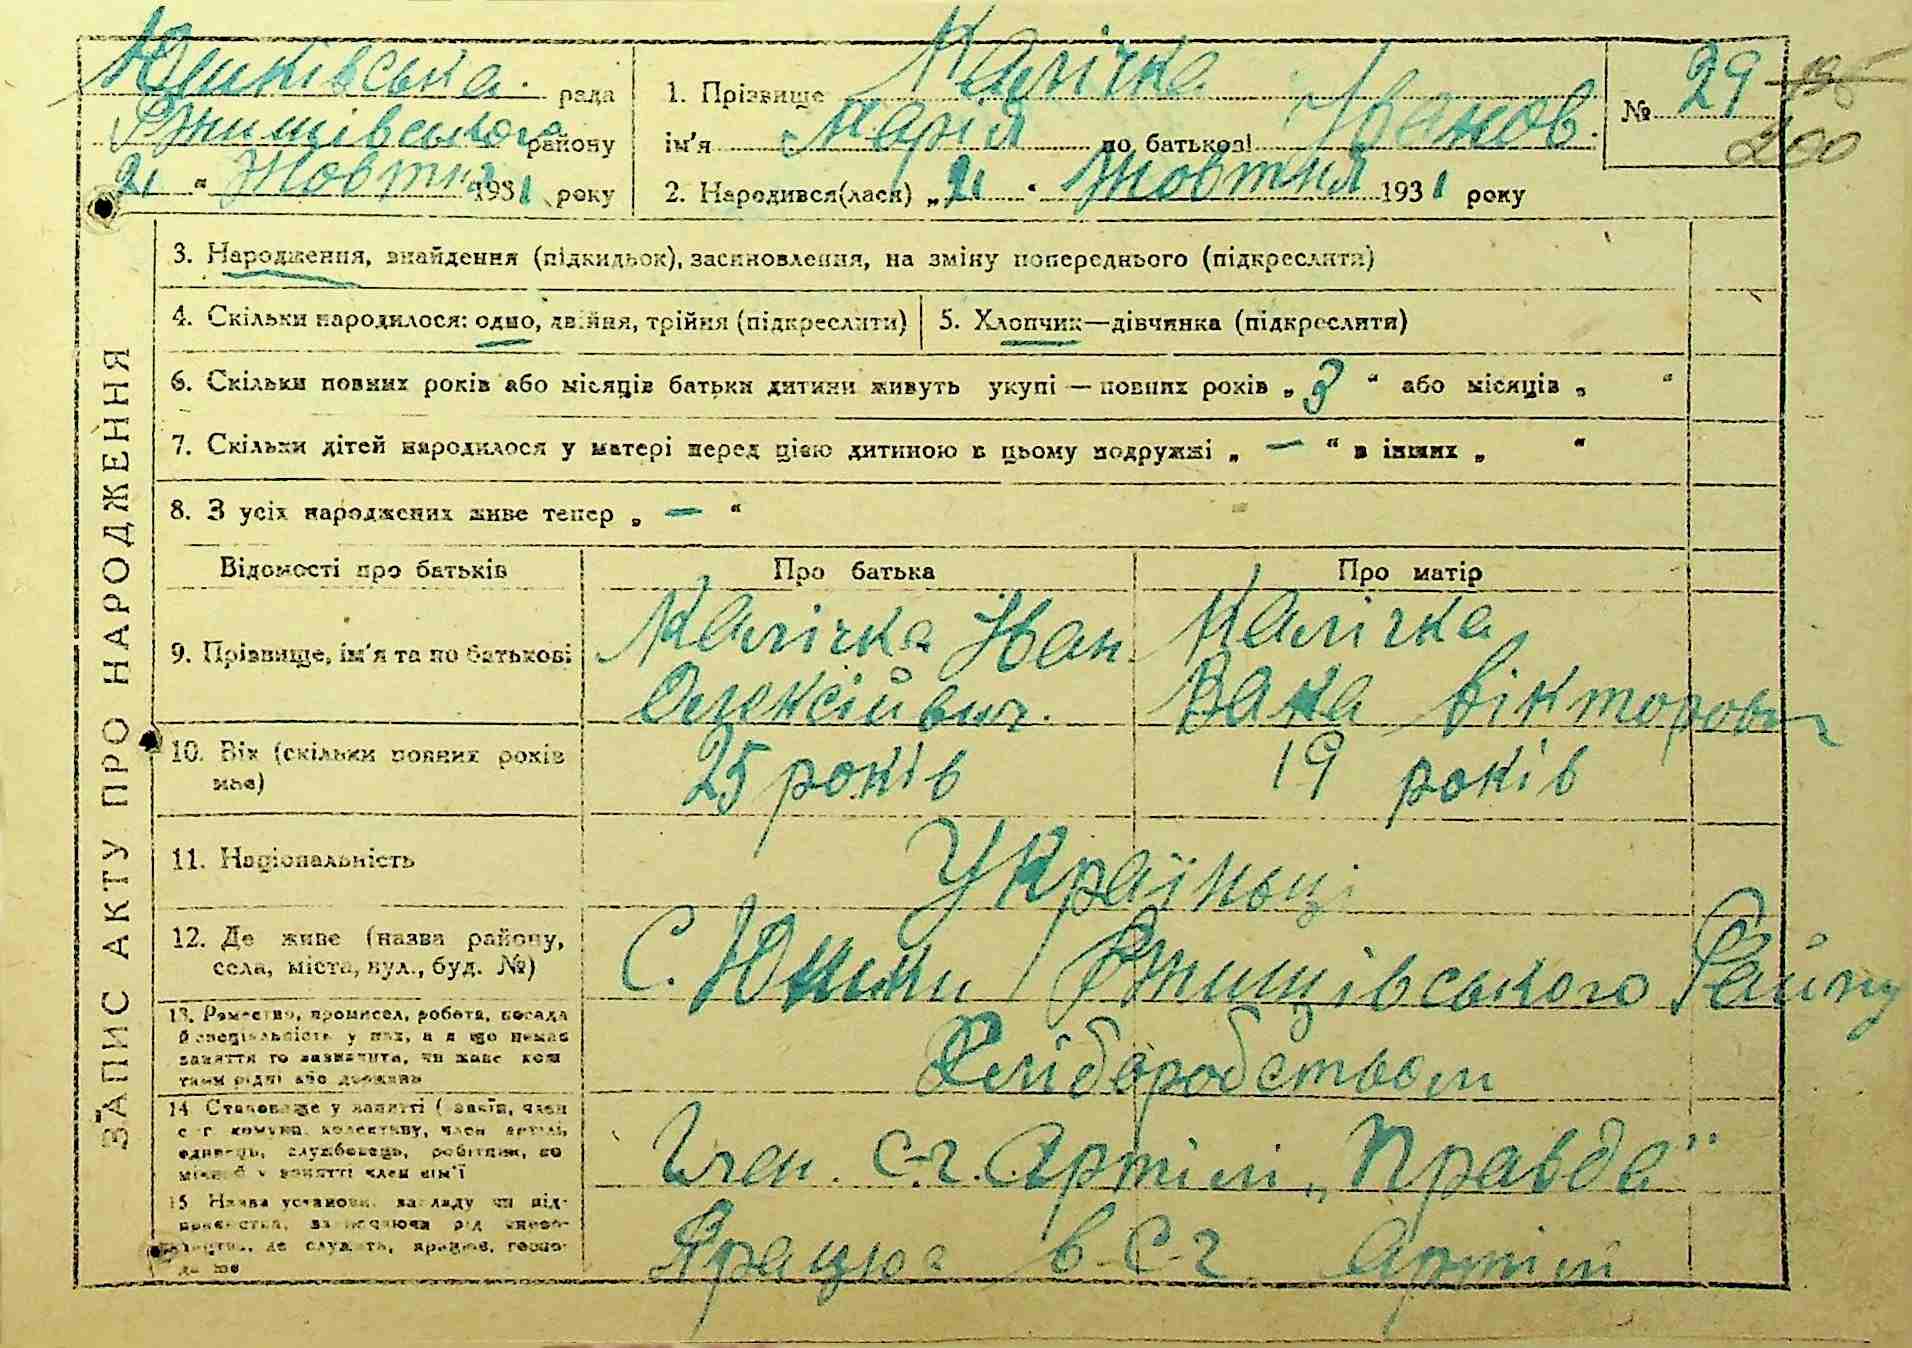 Юшківська рада
Ржищівського району
21 " Жовтня 1931 року
1. Прізвище Калічка
ім'я Марія по батькові Іванов.
2. Народився(лася) „21 " Жовтня 1931 року
№ 29
200
ЗАПИС АКТУ ПРО НАРОДЖЕННЯ
3. Народження, знайдення (підкидьок), засиновлення, на зміну попереднього (підкреслити)
4. Скільки народилося: одно, двійня, трійня (підкреслити)
5. Хлопчик—дівчинка (підкреслити)
6. Скільки повних років або місяців батьки дитини живуть укупі — повних років „ 3 " або місяців „ "
7. Скільки дітей народилося у матері перед цією дитиною в цьому подружжі „ — " в інших „ "
8. З усіх народжених живе тепер „ — "
Відомості про батьків
Про батька
Про матір
9. Прізвище, ім'я та по батькові
Калічка Іван
Олексійвич.
Калічка
Вікторовн
10. Вік (скільки повних років
має)
25 років
19 років
11. Національність
Українці
12. Де живе (назва району,
села, міста, вул., буд. №)
С. Юшки Ржищівського Району
13. Ремество, промисел, робота, посада
й спеціальність у них, а я що немає
заняття то зазначити, чи живе кош
там рідні або держави
Хліборобством
14. Становище у занятті ( член
с г. комуни, колективу, член артілі,
одинець, службовець, робітник, по
міжний у занятті член сім'ї
Член. С-г. Артілі „Правда"
15. Назва установи, закладу чи під-
приємства, зазначаючи рід
де служить, працює, госпо-
Працює в С-г Артілі